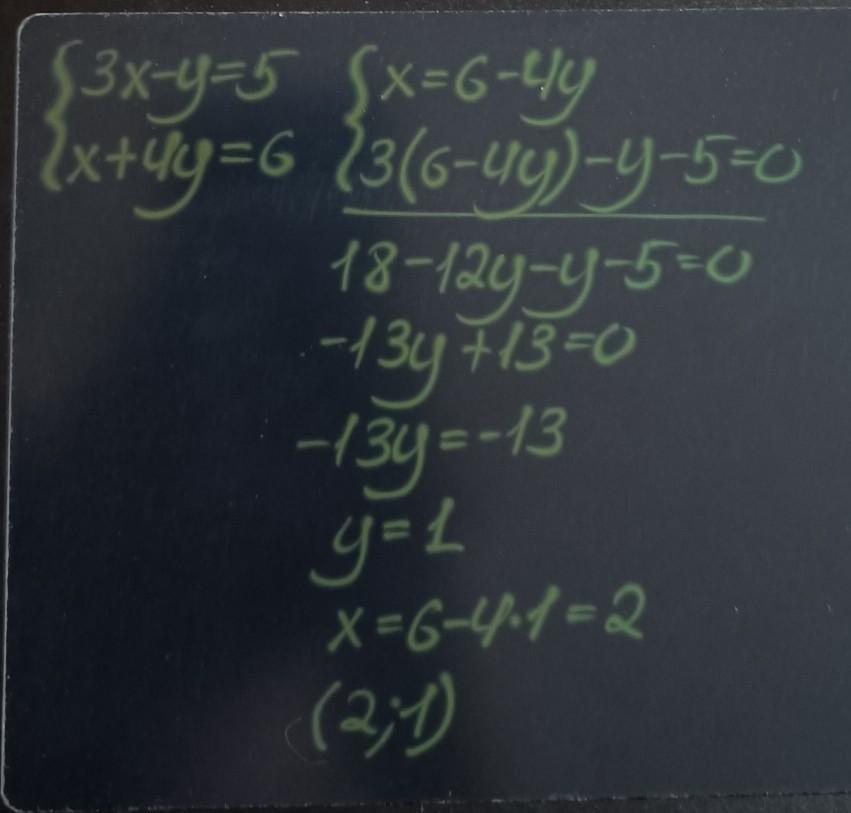 {3x-y=5 {x=6-4y
{x+4y=6 {3(6-4y)-y-5=0
18-12y-y-5=0
-13y+13=0
-13y=-13
y=1
x=6-4·1=2
(2;1)